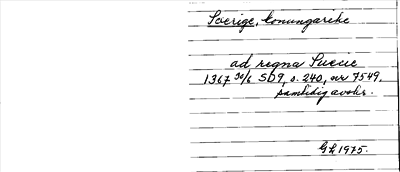 Sverige, konungarike
ad regna Suecie
1367 30/6 SD9, s. 240, nr 7549,
samtidig avskr.
GL 1975.